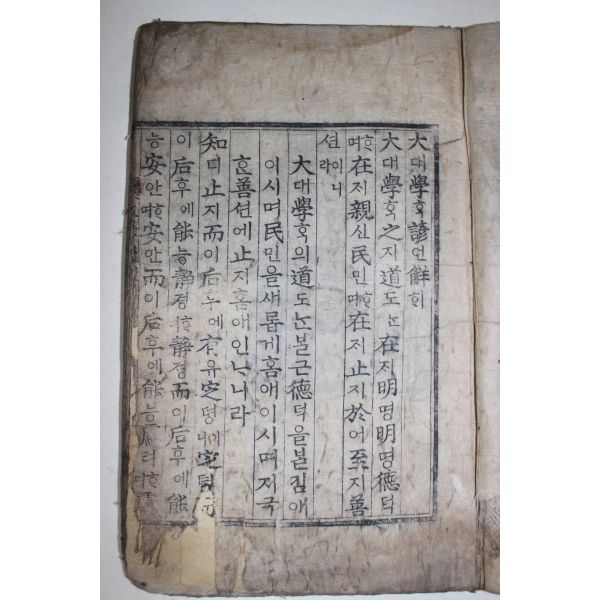 大대學ᄒᆞᆨ諺언觧ᄒᆡ
大대學ᄒᆞᆨ之지道도ᄂᆞᆫ在ᄌᆡ明명明명德덕
ᄒᆞ며在ᄌᆡ親신民민ᄒᆞ며在ᄌᆡ止지於어至지善
션이니라
大대學ᄒᆞᆨ의道도ᄂᆞᆫᄇᆞᆯ근德덕을ᄇᆞᆯ김애
이시며民민을새롭게홈애이시며지극
ᄒᆞᆫ善션에止지홈애인ᄂᆞ니라
知디止지而이后후에有유定뎡이니定뎡
이后후에能능靜졍ᄒᆞ며靜졍而이后후에能
능安안ᄒᆞ며安안而이后후에能능慮려ᄒᆞ며